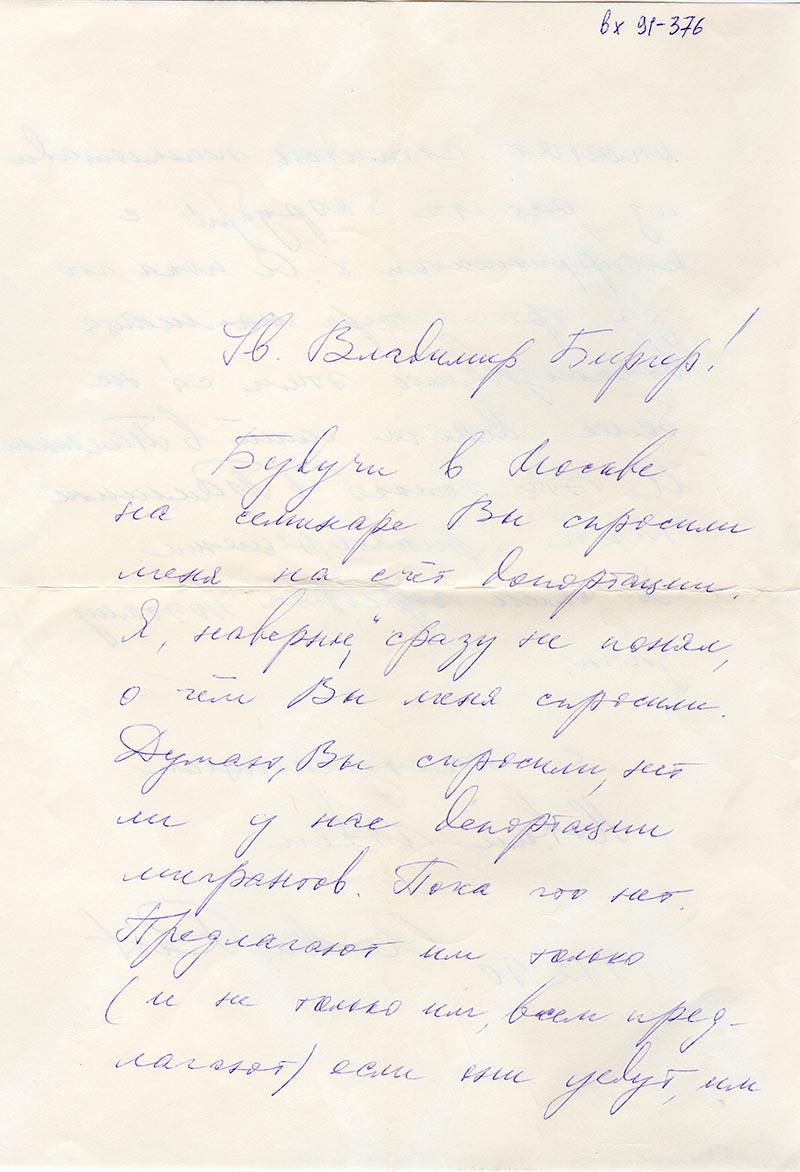 вх 91-376
Ув. Владимир Биргер!
Будучи в Москве
на семинаре Вы спросили
меня на счёт депортации.
Я, наверное, сразу не понял,
о чём Вы меня спросили.
Думаю, Вы спросили, нет
ли у нас депортации
мигрантов. Пока что нет.
Предлагают им только
(и не только им, всем пред-
лагают) если они уедут, им